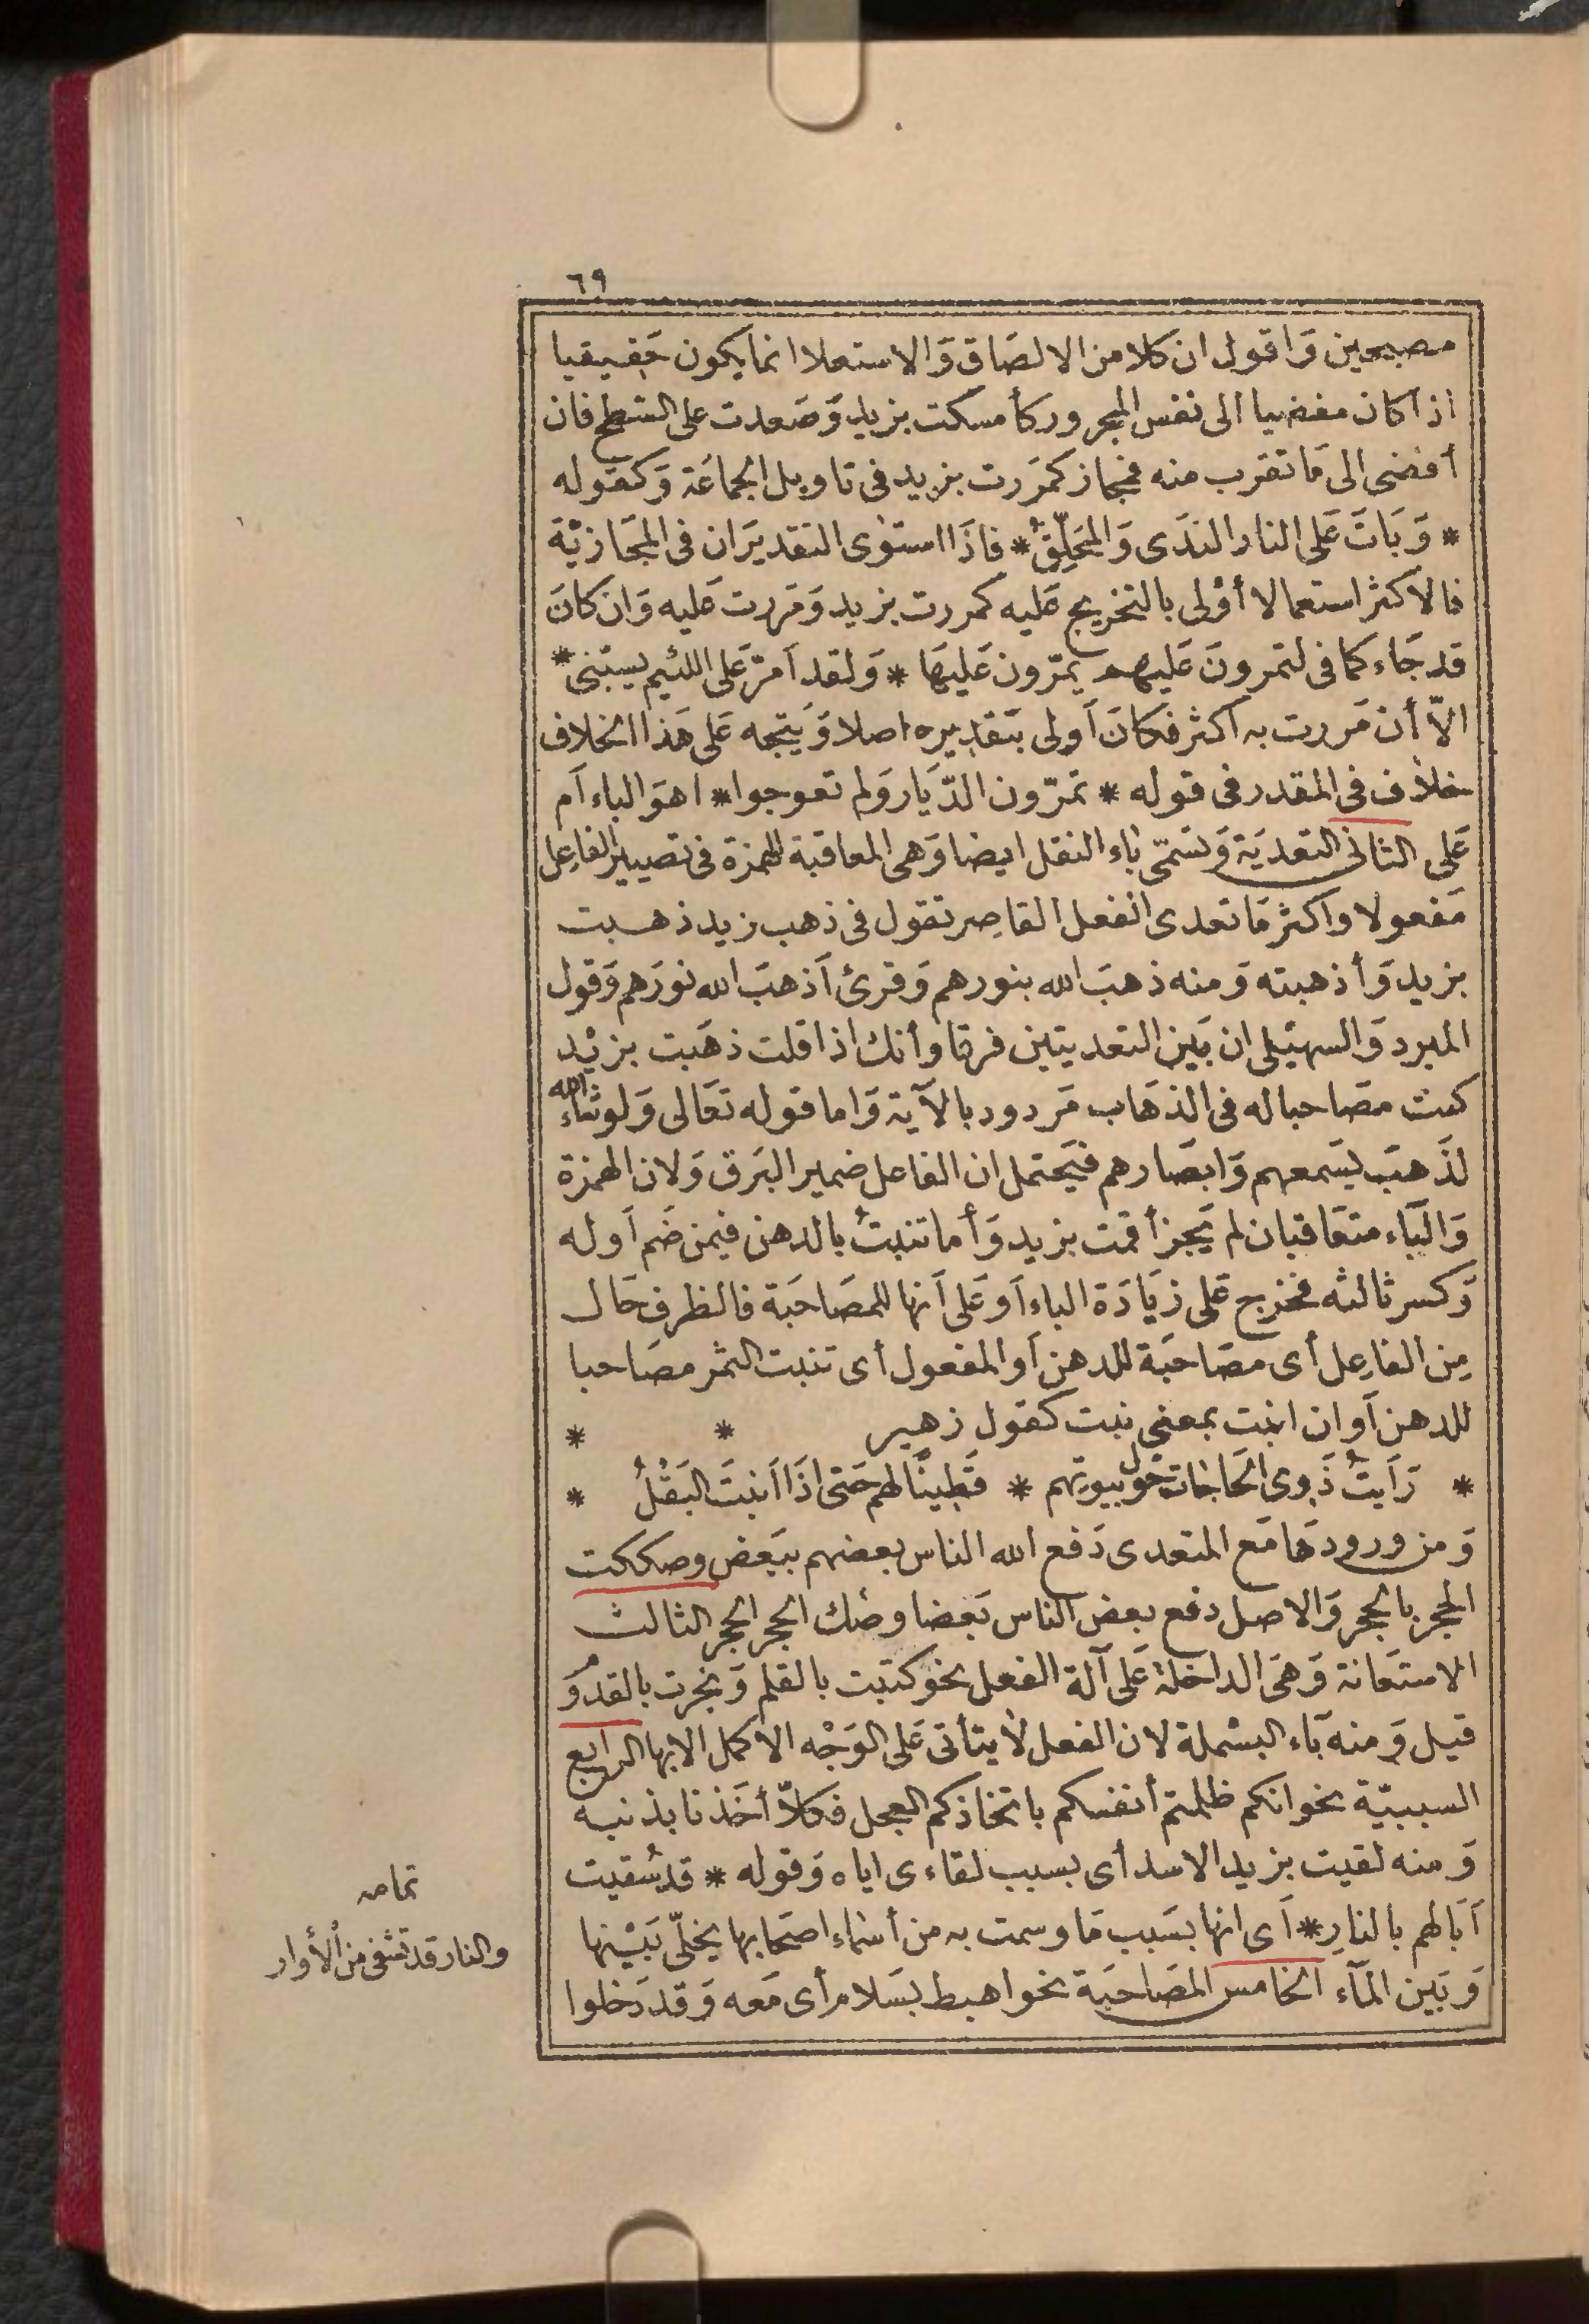 ٦٩
مصبحين وَاقول ان كلا من الالصَاق وَالاستعلا انما يكون حَقيقيا
اذا كان مفضيا الى نفس المجرور كأمسكت بزيد وَصَعدت على السَطح فان
أفضى الى مَا تقرب منه فمجاز كمرَرت بزيد فى تاويل الجماعَة وَكقوله
* وَبَاتَ عَلى النار الندَى وَالمحَلِّقُ * فاذَا استوٰى التقديرَان فى المجَازيّة
فالاكثر استعمالا أوْلى بالتخريج عَليه كمررت بزيد وَمَررت عَليه وَان كانَ
قد جَاء كما فى لتمرونَ عَليهم يمرّون عَليهَا * وَلقد اَمرّ عَلى اللئيم يسبّنى *
الاّ أن مَررت به اكثر فكانَ اَولى بتقديره اصلا وَيتجه عَلى هَذا الخلاف
خلاف فى المقدر فى قوله * تمرّون الدّيَار وَلم تعوجوا * اهوَ الباء اَم
عَلى الثانى التعديَة وَتسَمّى بَاء النقل ايضا وَهى المعاقبة للهمزة فى تصيير الفاعِل
مَفعولا واكثر مَا تعدى الفعل القاصِر تقول فى ذهب زيد ذهبت
بزيد وَأذهبته وَمنه ذهبَ الله بنورهم وَقرئ اَذهبَ الله نورَهم وَقول
المبرد وَالسهيَلى ان بَين التعديتين فرقا وأنك اذا قلت ذهَبت بزيْد
كنت مصَاحبا له فى الذهَاب مَردود بالآية وَاما قوله تعَالى وَلو شاءَ الله
لذَهبَ بسَمعهم وَابصَارهم فيَحتمل ان الفاعل ضمير البَرق وَلان الهمزة
وَالبَاء متعَاقبان لم يَجز أقمت بزيد وَأما تنبتُ بالدهن فيمن ضَم اَوله
وَكسر ثالثه فخرج عَلى زيَادَة الباء اَو عَلى اَنها للمصَاحبَة فالظرف حَال
مِن الفاعِل أى مصَاحبَة للدهن اَو المفعول أى تنبت الثمر مصَاحبا
للدهن اَو ان انبت بمعنى نبت كقول زهير * *
* رَاَيتُ ذَوِى الحَاجَات حَول بيوتهم * قَطِينًا لهم حَتى اذَا اَنبتَ البَقْلُ *
وَمن ورودهَا مَع المتعدى دَفع الله الناس بعضهم ببَعض وصككت
الحجر بالحجر وَالاصل دفع بعض الناس بَعضا وصَك الحجر الحجر الثالث
الاستعَانة وَهىَ الداخلة عَلى آلة الفعل نحو كتبت بالقلم وَنجرت بالقدوم
قيل وَمنه بَاء البسْملة لان الفعل لاَ يتأتى عَلى الوَجْه الاكمل الابها الرابع
السببيّة نحو انكم ظلمتم أنفسكم باتخاذكم العجل فكلاّ أخَذنا بذنبه
وَمنه لقيت بزيد الاسد أى بسبب لقاءى اياه وَقوله * قد سُقيت
آبَالهم بالنارِ * اَى انها بسَبب مَا وسمت به من أسْماء اصحَابها يخَلّى بَيْنها
وَبَين المَآء الخامس المصَاحبَة نحو اهبط بسَلام أى مَعه وَقد دَخلوا
تمامه
والنار قد تشفى من الأوار